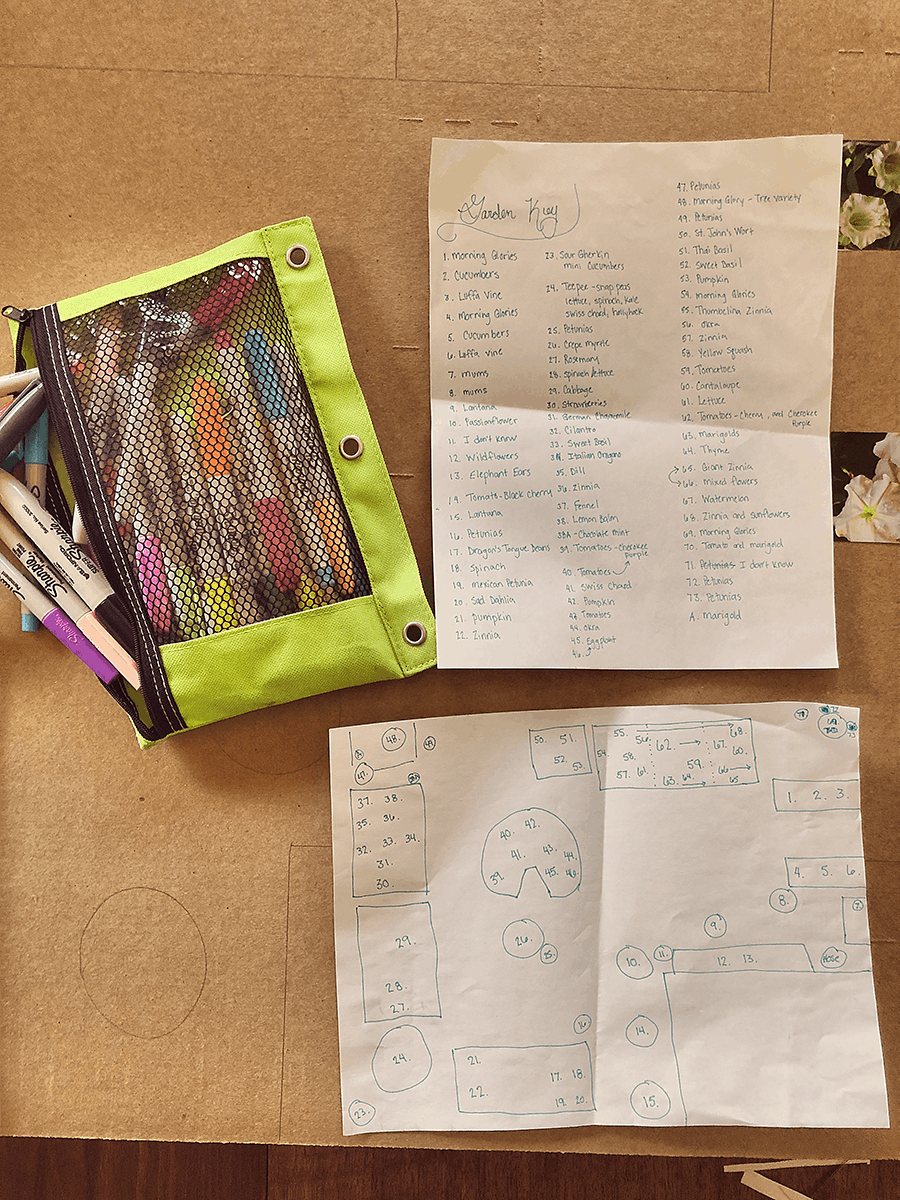 Garden Key
1. Morning Glories
2. Cucumbers
3. Loffa Vine
4. Morning Glories
5. Cucumbers
6. Loffa Vine
7. mums
8. mums
9. Lantana
10. Passionflower
11. I don't know
12. Wildflowers
13. Elephant Ears
14. Tomato-Black Cherry
15. Lantana
16. Petunias
17. Dragon's Tongue Beans
18. Spinach
19. Mexican Petunia
20. Sad Dahlia
21. pumpkin
22. Zinnia
23. Sour Gherkin
mini Cucumbers
24. Teepee-snap peas
lettuce, spinach, kale
swiss chard, hollyhock
25. Petunias
26. Crepe myrtle
27. Rosemary
28. Spinach/lettuce
29. Cabbage
30. Strawberries
31. German Chamomile
32. Cilantro
33. Sweet Basil
34. Italian Oregano
35. Dill
36. Zinnia
37. Fennel
38. Lemon Balm
38A - Chocolate Mint
39. Tomatoes-Cherokee
purple
40. Tomatoes
41. Swiss Chard
42. Pumpkin
43. Tomatoes
44. Okra
45. Eggplant
46.
47. Petunias
48. Morning Glory - Tree Variety
49. Petunias
50. St. John's Wort
51. Thai Basil
52. Sweet Basil
53. Pumpkin
54. Morning Glories
55. Thumbelina Zinnia
56. Okra
57. Zinnia
58. Yellow Squash
59. Tomatoes
60. Cantaloupe
61. Lettuce
62. Tomatoes-Cherry, and Cherokee
Purple
63. Marigolds
64. Thyme
65. Giant Zinnia
66. Mixed flowers
67. Watermelon
68. Zinnia and Sunflowers
69. Morning Glories
70. Tomato and marigold
71. Petunias I don't know
72. Petunias
73. Petunias
A. Marigold
Sharpie
Sharpie
Sharpie
48. 49.
47.
50. 51.
52. 53.
54. 55. 68.
56. 62. 67.
58. 60.
59. 66
57. 61. 63. 64. 65.
1. 2. 3.
37. 38.
35. 36.
32. 33. 34.
31.
30.
40. 42.
41. 43. 44.
39. 45. 46.
4. 5. 6.
8. 7.
9.
29.
26. 25.
10. 11. 12. 13. Hose
28.
27.
16
14.
24.
21. 17. 18.
22. 19. 20.
15.
23.